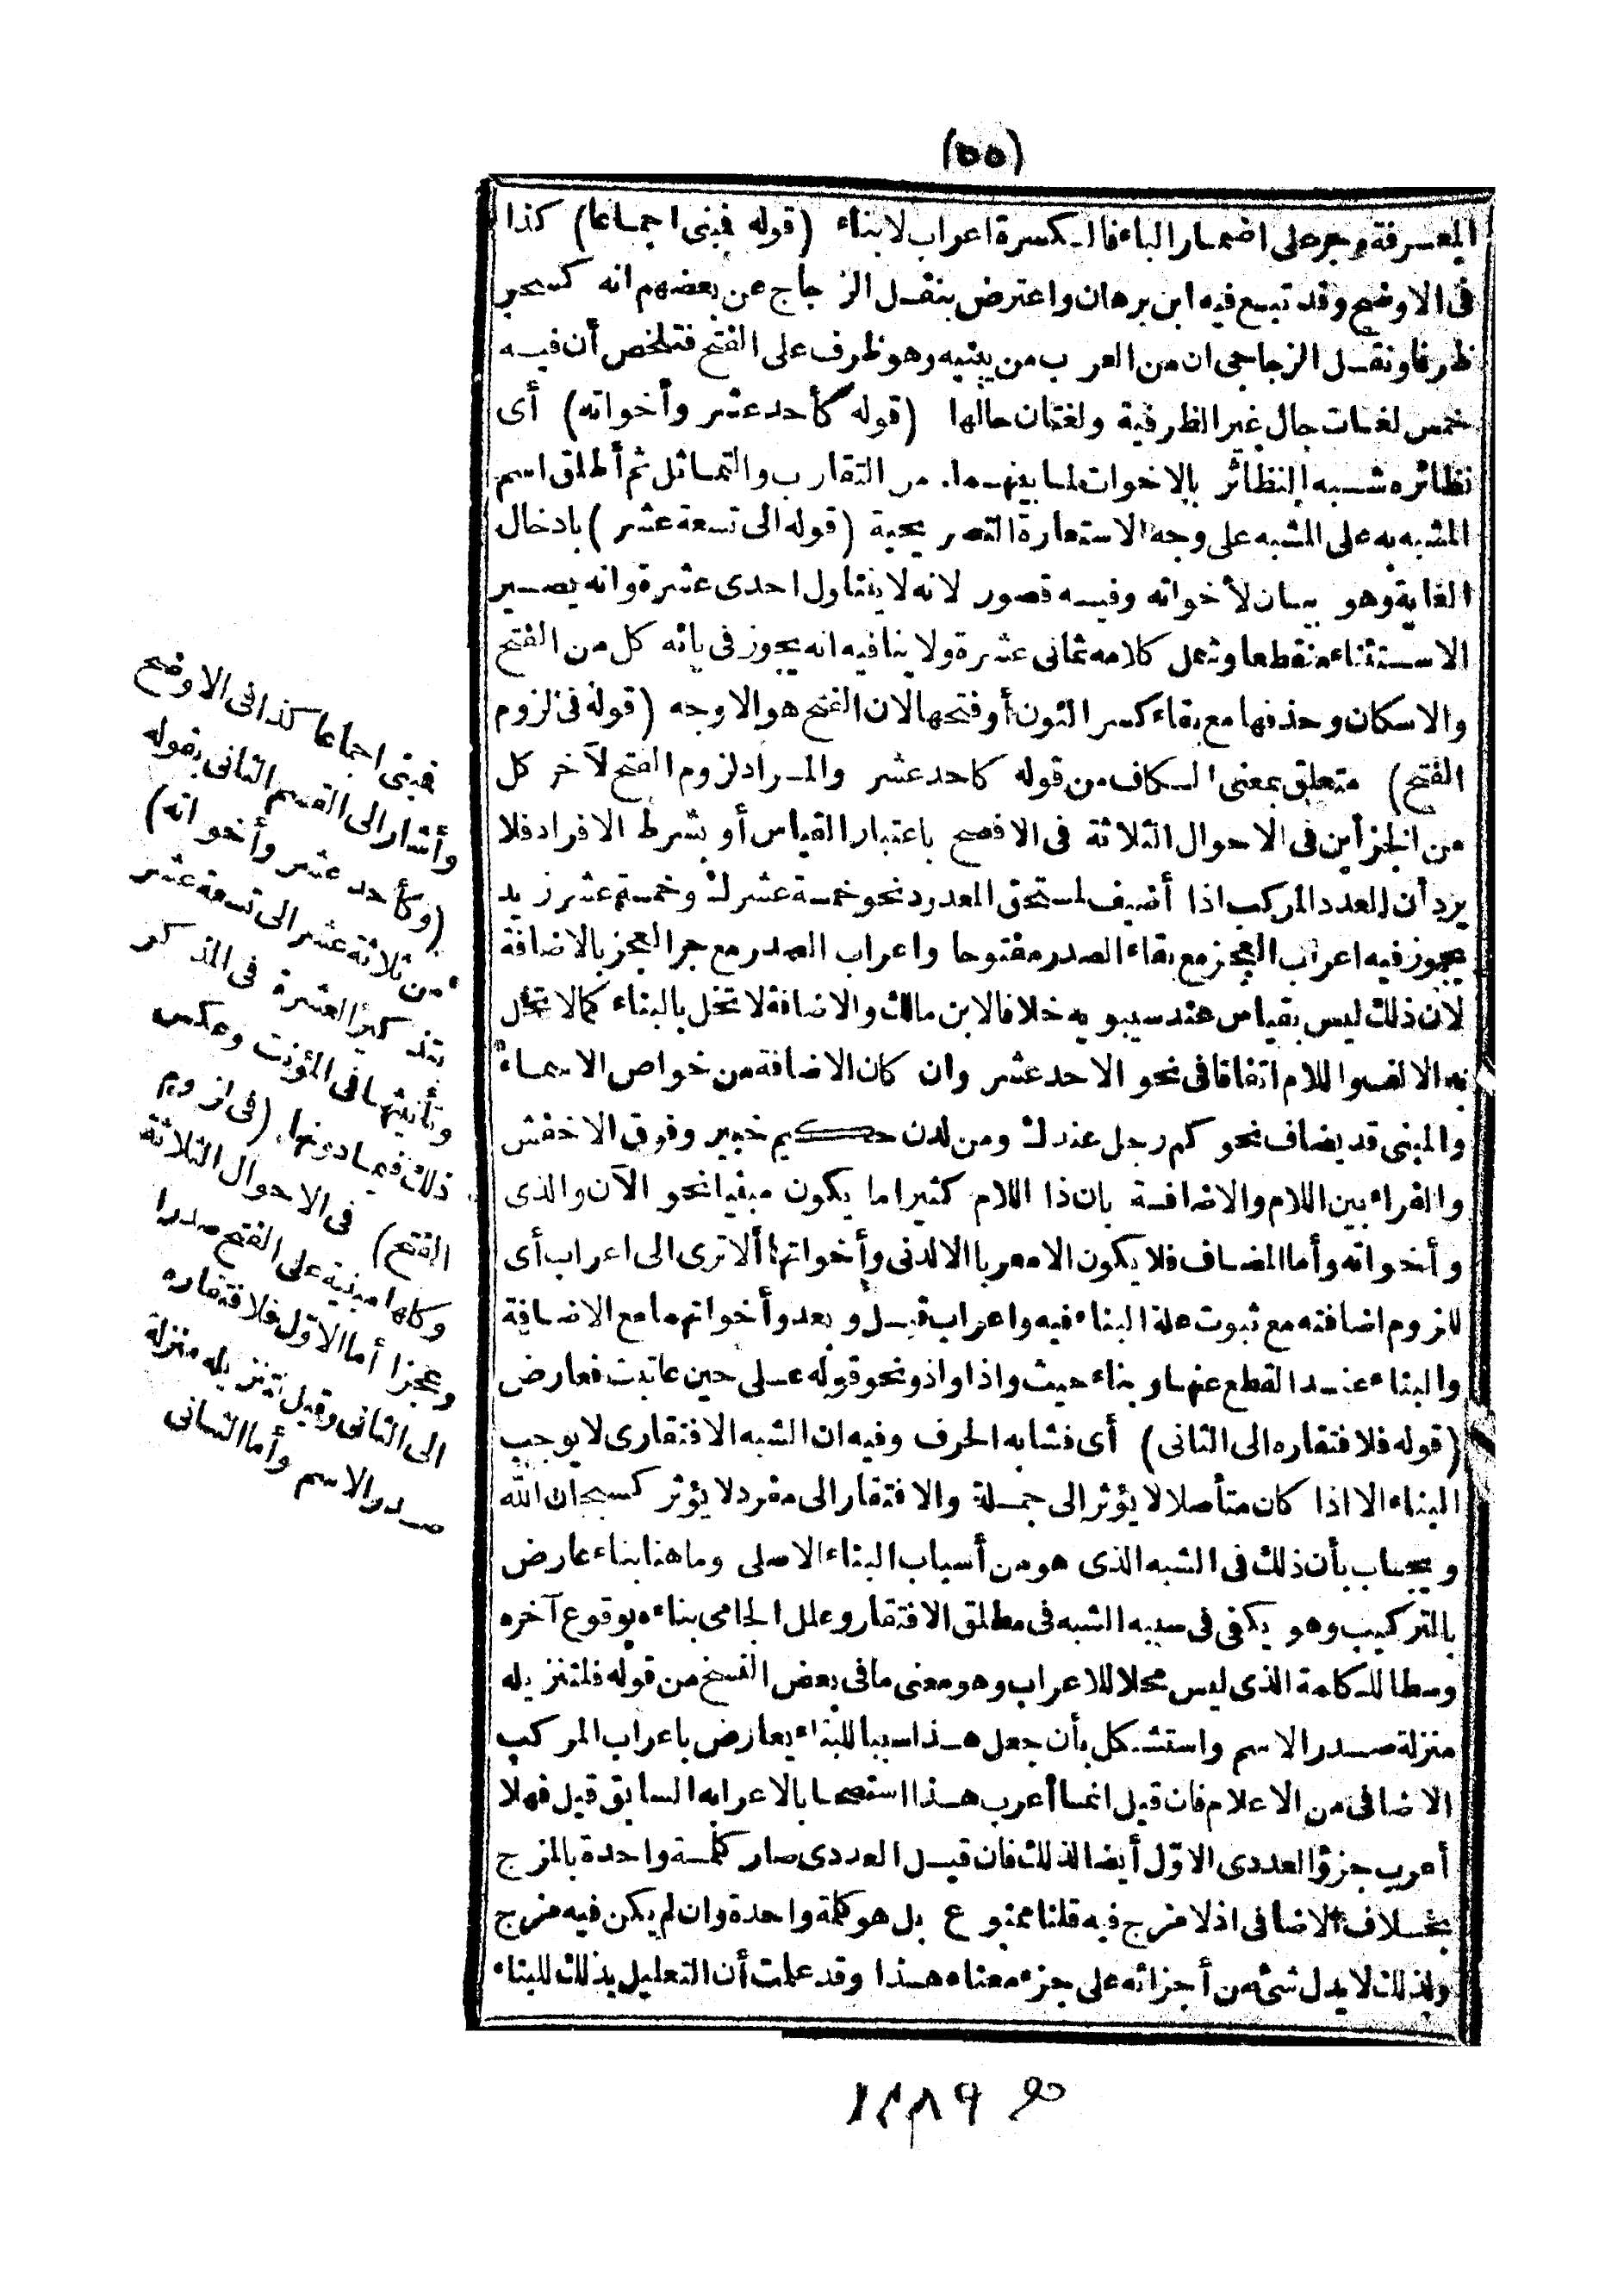 (٥٥)
المعرفة وجره على اضمار الباء فالكسرة اعراب لا بناء (قوله فبنى اجماعا) كذا
فى الاوضح وقد تبع فيه ابن برهان واعترض بنقل الزجاج عن بعضهم انه كسحر
ظرفا ونقل الزجاجى ان من العرب من يبنيه وهو ظرف على الفتح فتلخص أن فيه
خمس لغات حال غير الظرفية ولغتان حالها (قوله كأحد عشر وأخواته) أى
نظائره شبه النظائر بالاخوات لما بينهما من التقارب والتماثل ثم أطلق اسم
المشبه به على المشبه على وجه الاستعارة التصريحية (قوله الى تسعة عشر) بادخال
الغاية وهو بيان لأخواته وفيه قصور لانه لا يتناول احدى عشرة وانه يصير
الاستثناء منقطعا وشمل كلامه ثمانى عشرة ولا ينافيه انه يجوز فى يائه كل من الفتح
والاسكان وحذفها مع بقاء كسر النون أو فتحها لان الفتح هو الاوجه (قوله فى لزوم
الفتح) متعلق بمعنى الكاف من قوله كاحد عشر والمراد لزوم الفتح لآخر كل
من الجزأين فى الاحوال الثلاثة فى الافصح باعتبار القياس أو بشرط الافراد فلا
يرد أن العدد المركب اذا أضيف لمستحق المعدود نحو خمسة عشرك وخمسة عشر زيد
يجوز فيه اعراب العجز مع بقاء الصدر مفتوحا واعراب الصدر مع جر العجز بالاضافة
لان ذلك ليس بقياس عند سيبويه خلافا لابن مالك والاضافة لا تخل بالبناء كما لا تخل
به الالف واللام اتفاقا فى نحو الاحد عشر وان كان الاضافة من خواص الاسماء
والمبنى قد يضاف نحو كم رجل عندك ومن لدن حكيم خبير وفرق الاخفش
والفراء بين اللام والاضافة بان ذا اللام كثيرا ما يكون مبنيا نحو الآن والذى
وأخواته وأما المضاف فلا يكون الا معربا الا لدنى وأخواتها ألا ترى الى اعراب أى
للزوم اضافته مع ثبوت علة البناء فيه واعراب قبل وبعد وأخواتهما مع الاضافة
والبناء عند القطع عنها وبناء حيث واذا واذ ونحو قوله على حين عاتبت فعارض
(قوله فلافتقاره الى الثانى) أى فشابه الحرف وفيه ان الشبه الافتقارى لا يوجب
البناء الا اذا كان متأصلا لا يؤثر الى جملة والافتقار الى مفرد لا يؤثر كسبحان الله
ويجاب بأن ذلك فى الشبه الذى هو من أسباب البناء الاصلى وما هنا بناء عارض
بالتركيب وهو يكفى فى سببه الشبه فى مطلق الافتقار وعلل الجامى بناءه بوقوع آخره
وسطا للكلمة الذى ليس محلا للاعراب وهو معنى ما فى بعض النسخ من قوله فلتنزيله
منزلة صدر الاسم واستشكل بأن جعل هذا سببا للبناء يعارض باعراب المركب
الاضافى من الاعلام فان قيل انما أعرب هذا استصحابا لاعرابه السابق قيل فهلا
أعرب جزؤ العددى الاوّل أيضا لذلك فان قيل العددى صار كلمة واحدة بالمزج
بخلاف الاضافى اذ لا مزج فيه قلنا ممنوع بل هو كلمة واحدة وان لم يكن فيه مزج
ولذلك لا يدل شئ من أجزائه على جزء معناه هذا وقد علمت أن التعليل بذلك للبناء
فبنى اجماعا كذا فى الاوضح
وأشار الى القسم الثانى بقوله
(وكأحد عشر وأخواته)
من ثلاثة عشر الى تسعة عشر
بتذكير العشرة فى المذكر
وتأنيثها فى المؤنث وعكس
ذلك فيما دونها (فى لزوم
الفتح) فى الاحوال الثلاثة
وكلها مبنية على الفتح صدرا
وعجزا أما الاوّل فلافتقاره
الى الثانى وقيل لتنزيله منزلة
صدر الاسم وأما الثانى